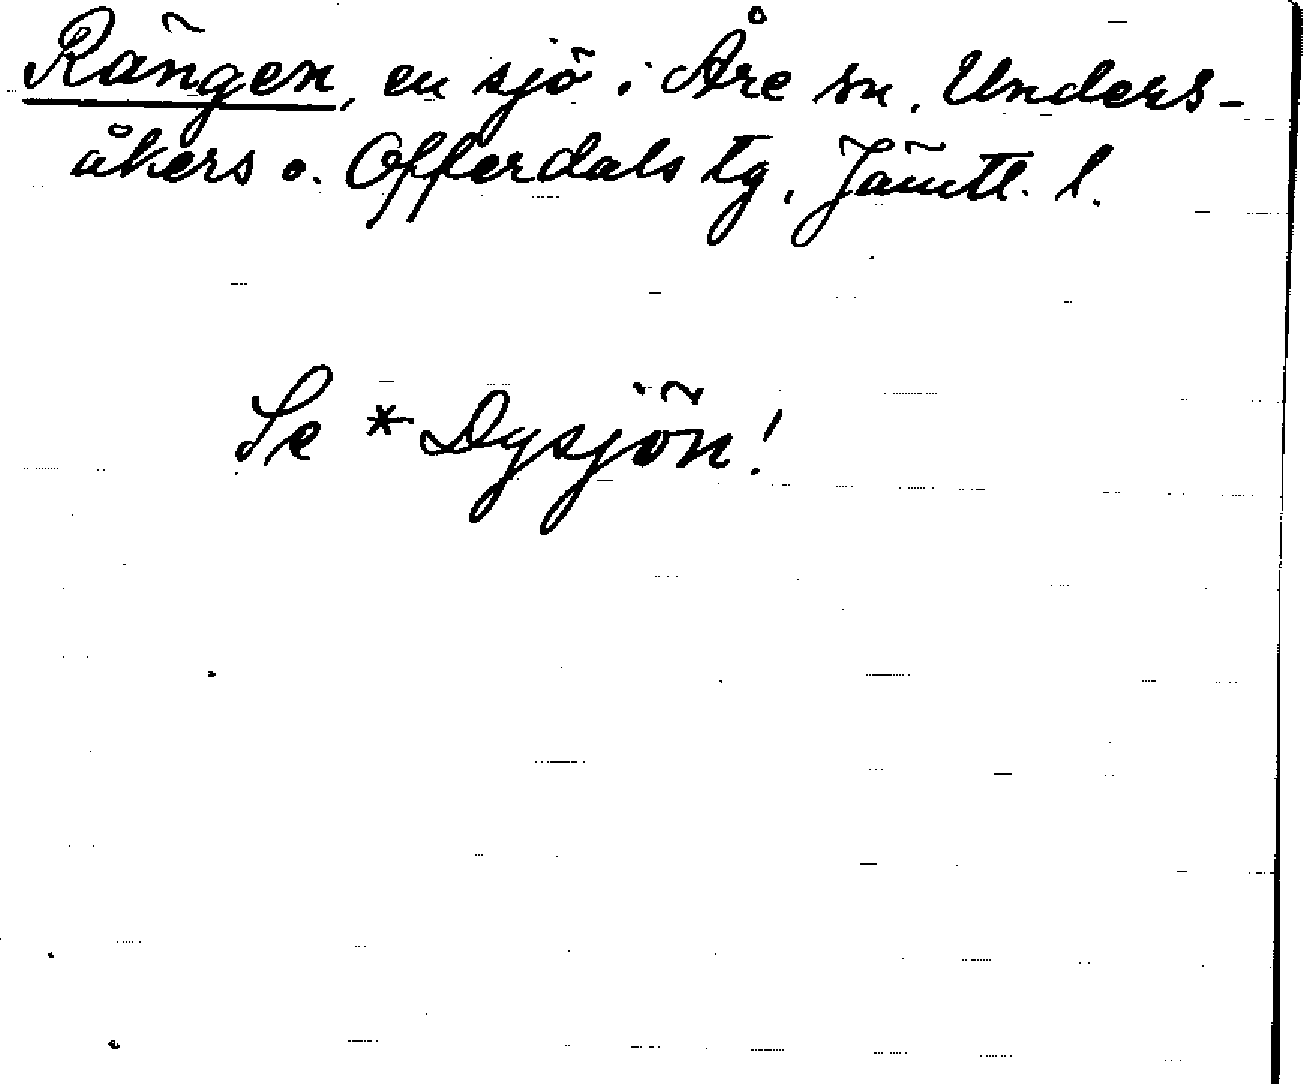 Rängen, en sjö i Åre sn, Unders-
åkers o. Offerdals tg, Jämtl. l.
Se *Dysjön!